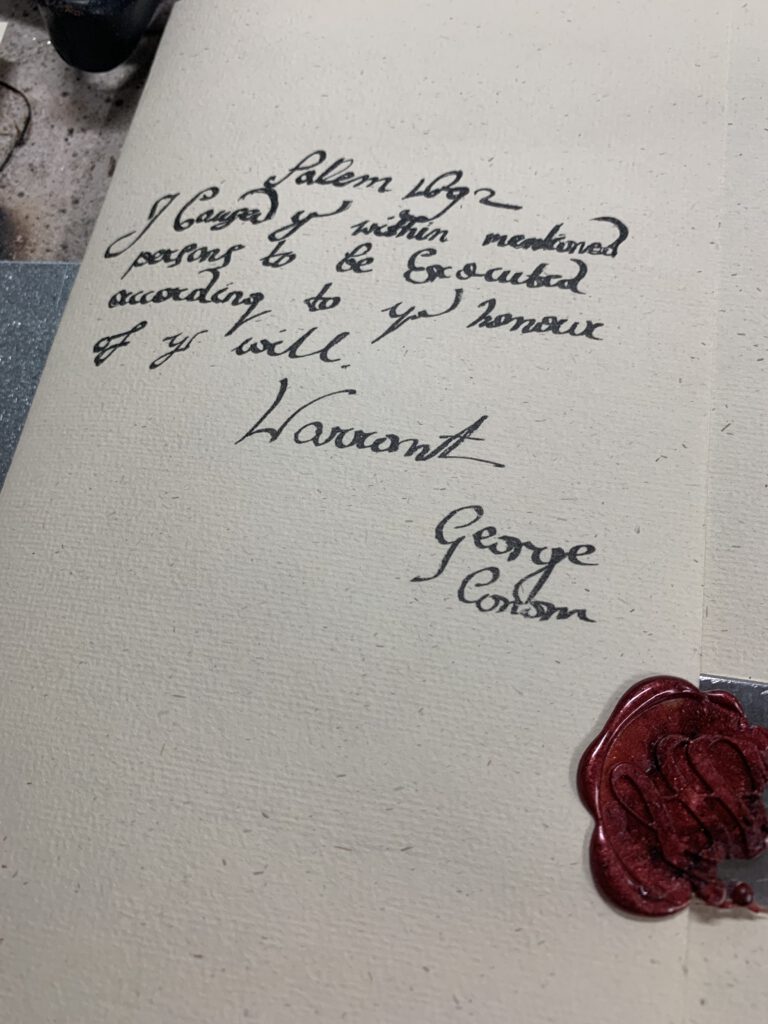 Salem 1692
I Caused ye within mentioned
persons to be Executed
according to ye honour
of ys will.
Warrant
George
Conom